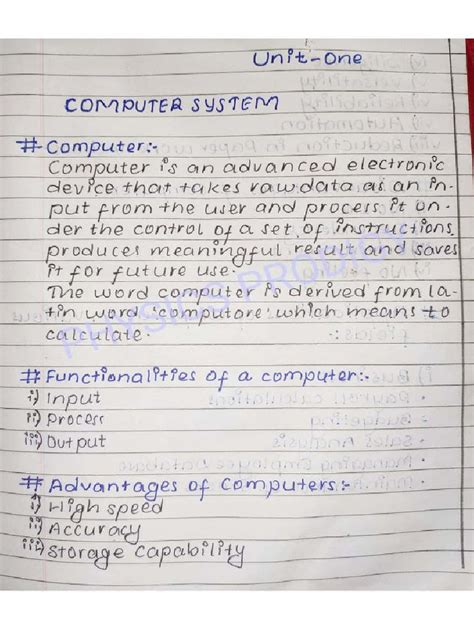 Unit-One
COMPUTER SYSTEM
# Computer:-
Computer is an advanced electronic
device that takes raw data as an in-
put from the user and process it un-
der the control of a set of instructions,
produces meaningful result and saves
it for future use.
The word computer is derived from la-
tin word 'computore' which means to
calculate.
# Functionalities of a computer:-
i) Input
ii) Process
iii) Output
# Advantages of computers:-
i) High speed
ii) Accuracy
iii) storage capability